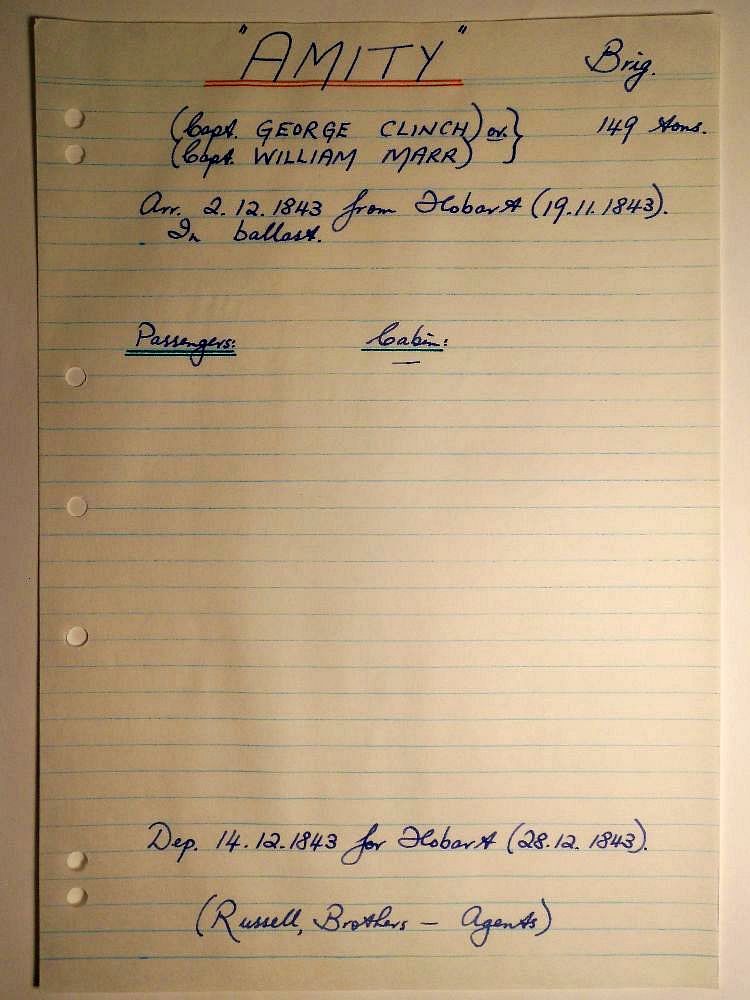 "AMITY" Brig.
(Capt. GEORGE CLINCH) or } 149 tons.
(Capt. WILLIAM MARR) }
Arr. 2.12.1843 from Hobart (19.11.1843).
In ballast.
Passengers: Cabin:
—
Dep. 14.12.1843 for Hobart (28.12.1843).
(Russell, Brothers — Agents)